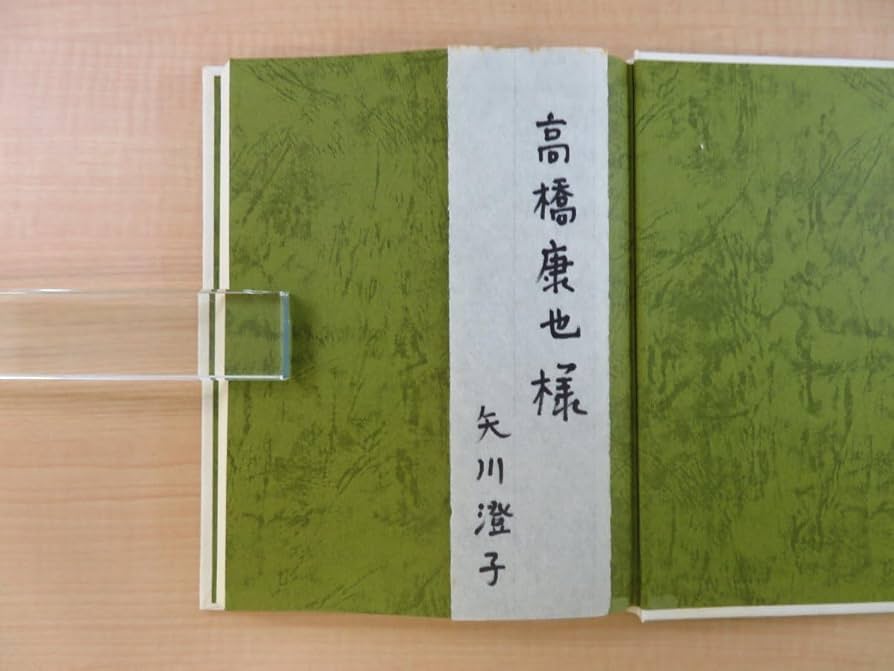 高橋康也様
矢川澄子